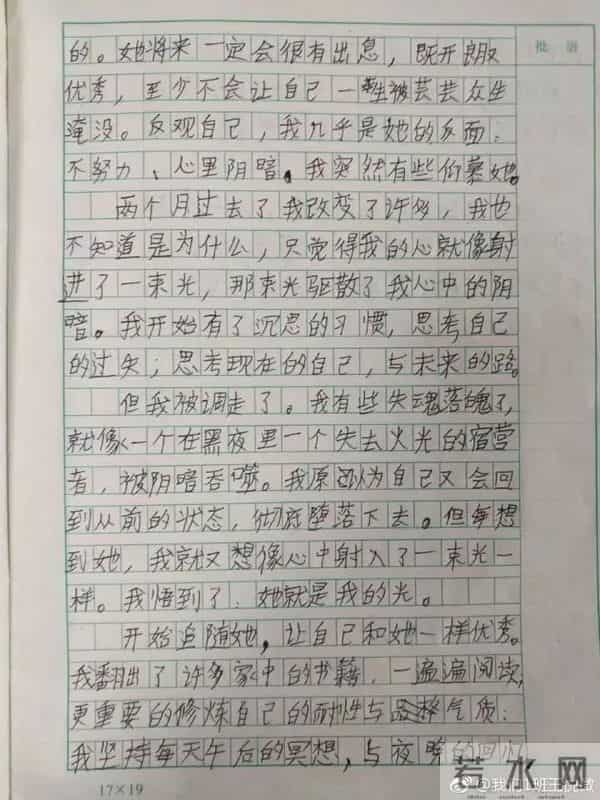 批语
的。她将来一定会很有出息，既开朗又
优秀，至少不会让自己一生被芸芸众生
淹没。反观自己，我几乎是她的反面：
不努力、心里阴暗。我突然有些仰慕她。
两个月过去了我改变了许多，我也
不知道是为什么，只觉得我的心就像射
进了一束光，那束光驱散了我心中的阴
暗。我开始有了沉思的习惯，思考自己
的过失；思考现在的自己，与未来的路。
但我被调走了。我有些失魂落魄了，
就像一个在黑夜里一个失去火光的宿营
者，被阴暗吞噬。我原还以为自己又会回
到从前的状态，彻底堕落下去。但每想
到她，我就又想像心中射入了一束光一
样。我悟到了：她就是我的光。
开始追随她，让自己和她一样优秀。
我翻出了许多家中的书籍，一遍遍阅读，
更重要的修炼自己的耐性与品格气质：
我坚持每天午后的冥想，与夜晚的回
17×19
若水网
@我们1班王悦微